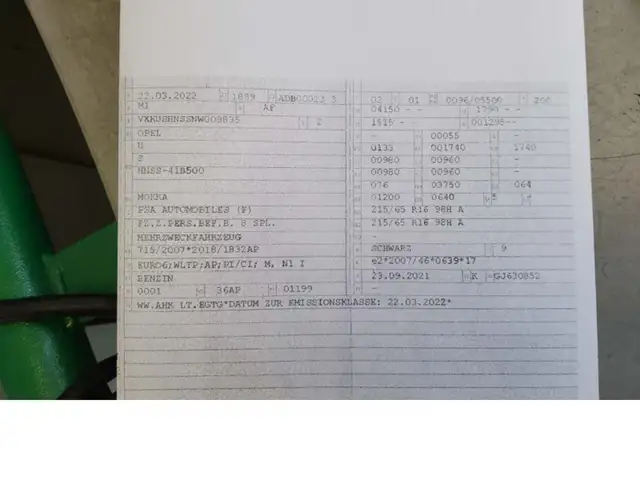 22.03.2022 1889 ADB00022 3
M1 AF
2
OPEL
U
S
MOKKA
PSA AUTOMOBILES (F)
FZ.Z.PERS.BEF.B. 8 SPL.
MEHRZWECKFAHRZEUG
715/2007*2018/1832AP
EURO6;WLTP;AP;PI/CI; M, N1 I
BENZIN
0001 36AP 01199
WW.AHK LT.EGTG*DATUM ZUR EMISSIONSKLASSE: 22.03.2022*
02 01 0096/05500 200
04150 - - 1790 - -
- 00055 -
0133 001740 1740
00960 00960 -
00980 00960 -
076 03750 064
01200 0640 -
215/65 R16 98H A
215/65 R16 98H A
-
SCHWARZ 9
e2*2007/46*0639*17
23.09.2021 K GJ630852
-